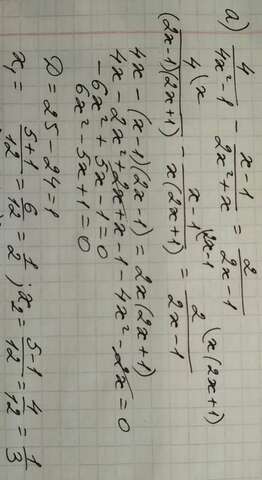 а) 4/(4x²-1) - (x-1)/(2x²+x) = 2/(2x-1)
4(x/((2x-1)(2x+1)) - (x-1(2x-1)/(x(2x+1)) = 2(x(2x+1)/(2x-1)
4x-(x-1)(2x-1)=2x(2x+1)
4x-2x²+2x+x-1-4x²-2x=0
-6x²+5x-1=0
6x²-5x+1=0
D=25-24=1
x₁= (5+1)/12 = 6/12 = 1/2 ; x₂= (5-1)/12 = 4/12 = 1/3